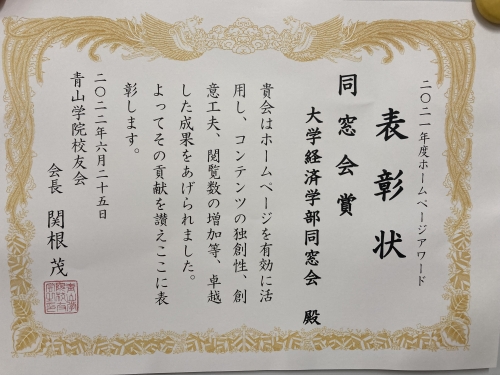 二〇二一年度ホームページアワード
表彰状
同窓会賞
大学経済学部同窓会 殿
貴会はホームページを有効に活
用し、コンテンツの独創性、創
意工夫、閲覧数の増加等、卓越
した成果をあげられました。
よってその貢献を讃えここに表
彰します。
二〇二二年六月二十五日
青山学院校友会
会長 関根 茂